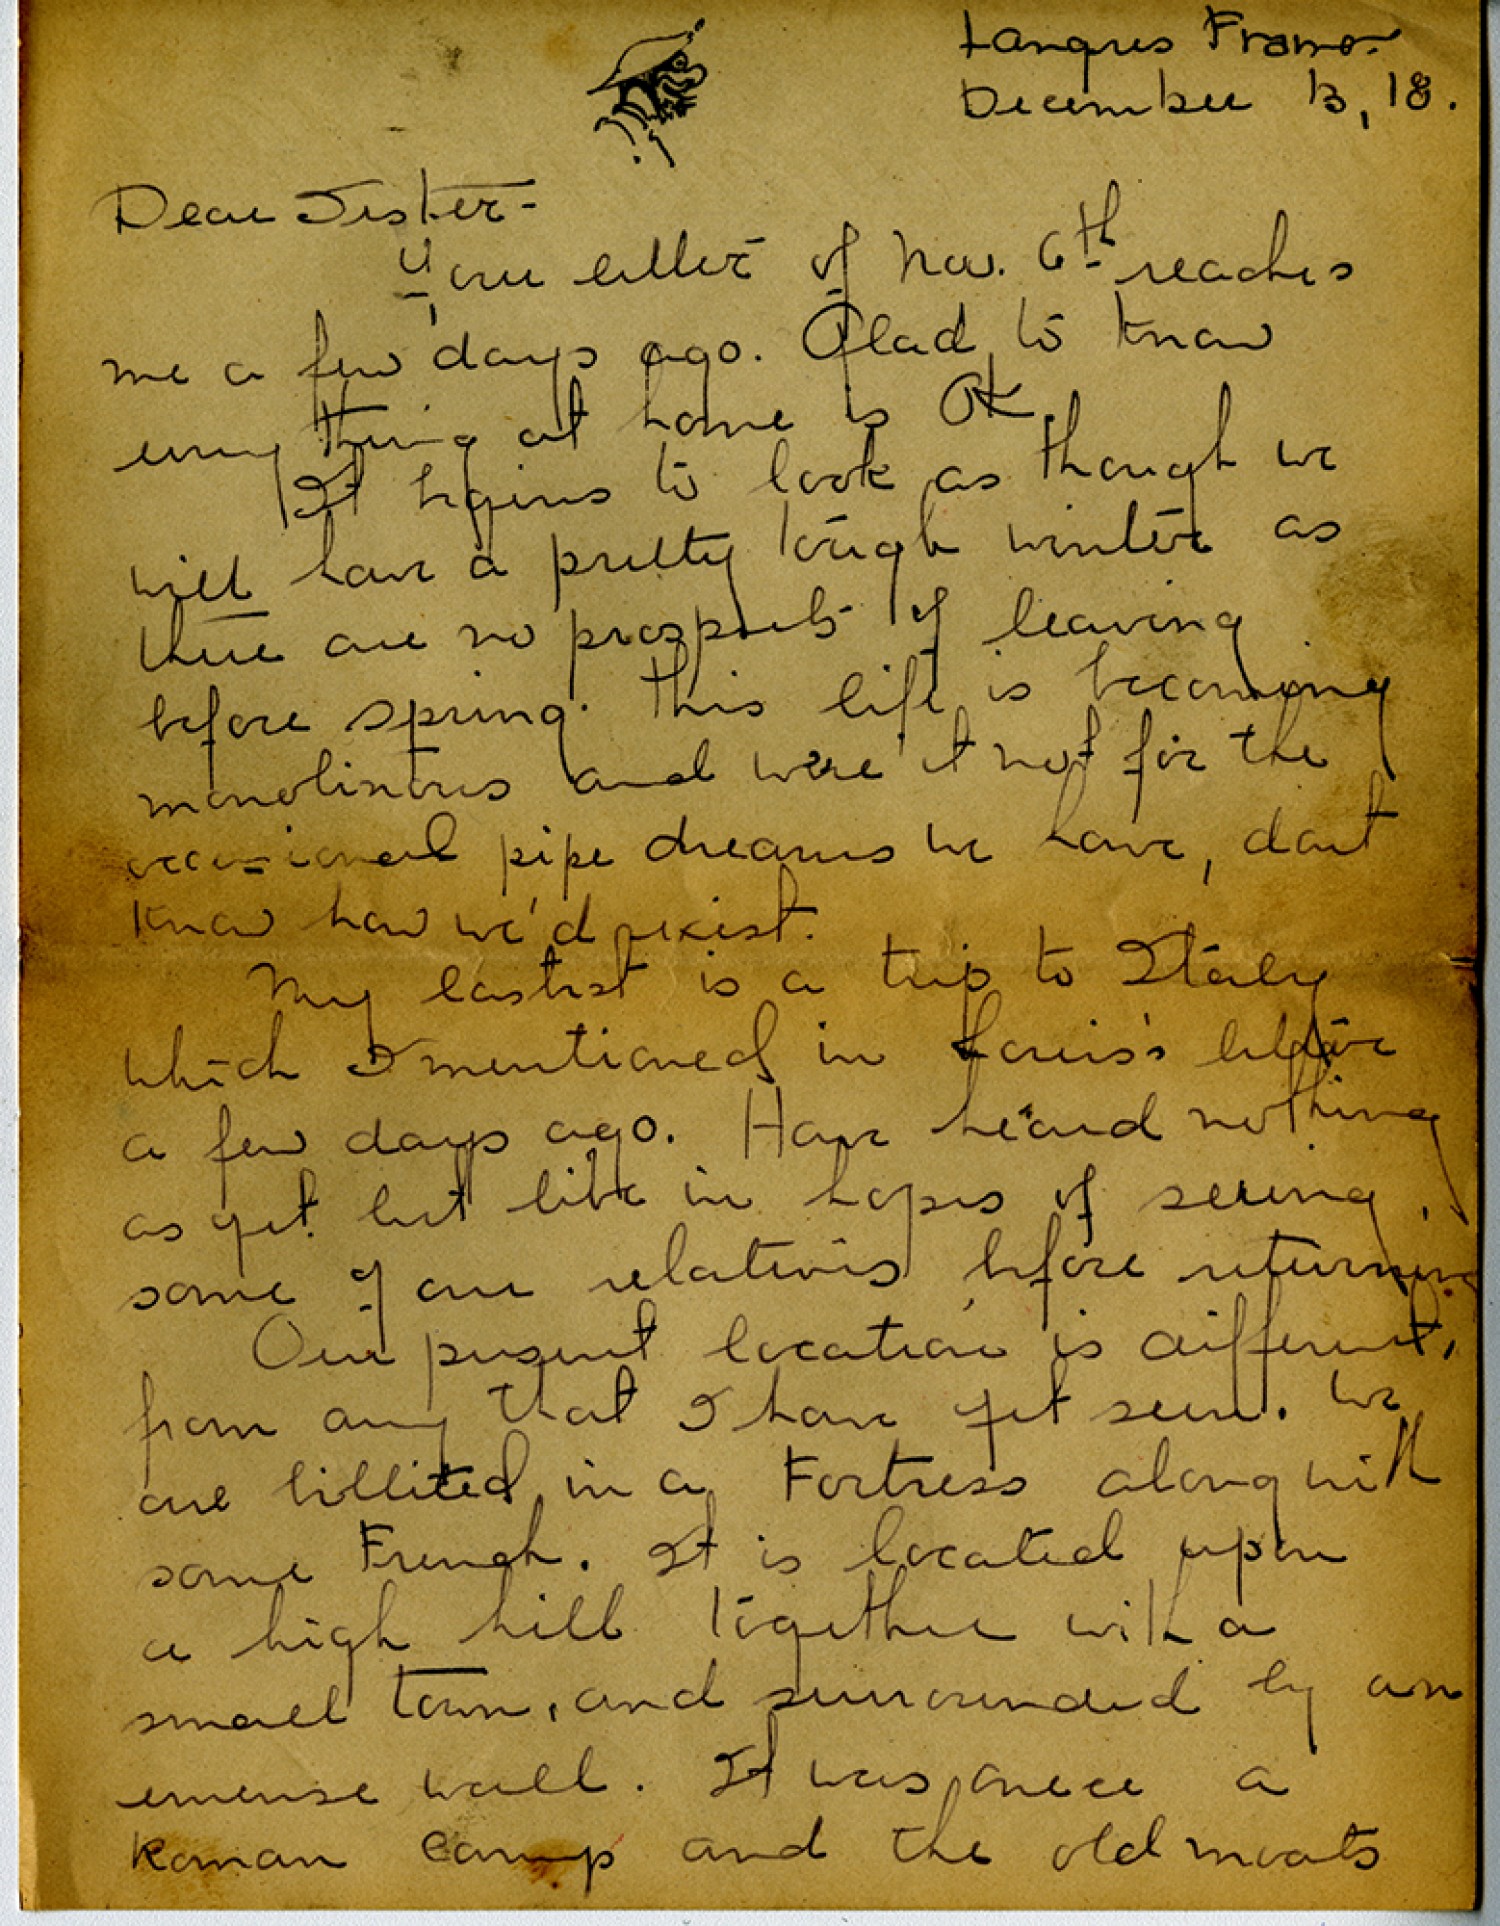 Langres France
December 13, 18.
Dear Sister-
Your letter of Nov. 6th reaches
me a few days ago. Glad to know
every thing at home is OK.
It begins to look as though we
will have a pretty tough winter as
there are no prospects of leaving
before spring. This life is becoming
monotinous and were it not for the
occasional pipe dreams we have, dont
know how we'd exist.
My lastest is a trip to Italy
which I mentioned in Louis's letter
a few days ago. Have heard nothing
as yet but live in hopes of seeing
some of our relatives before returning
Our present location is different
from any that I have yet seen. We
are billited in a Fortress along with
some French. It is located upon
a high hill together with a
small town, and surrounded by an
emense wall. It was once a
Roman Camp and the old moats